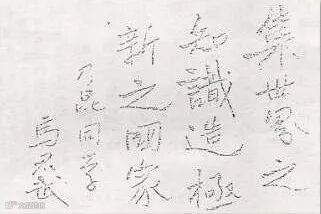 集世界之
知識造極
新之國家
乃昆同学
馬君武